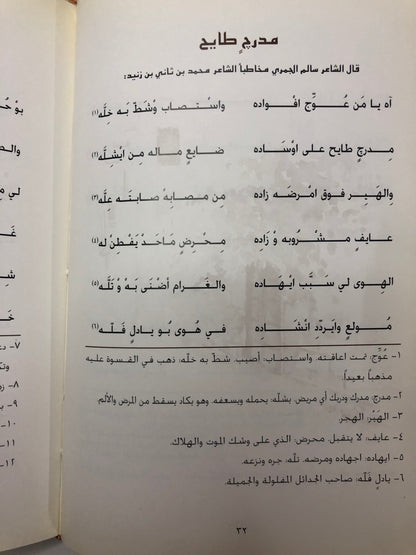 مدرجٍ طايح
قال الشاعر سالم الجمري مخاطباً الشاعر محمد بن ثاني بن زنيد:
آه يا مَن عُوِّج افْواده واسْتصاب وُشَطّ به خِلّه (١)
مِدرجٍ طايح على اوْسَاده ضايعٍ ماله مِن ايْشلّه (٢)
والهَيِر فوق امْرضَه زاده مِن مصابِهْ صابتَه عِلّه (٣)
عايفٍ مشْروبه وُ زاده مِحْرضٍ مَاحَدْ يَفْطِنْ له (٤)
الهوى لي سَبّب ايْهاده والغرام أضْنى به وُ تَلّه (٥)
مُولعٍ وَايَردِّد انْشاده في هوى بُو يادلٍ فَلّه (٦)
١- عُوِّج: تمت اعاقته. واستصاب: أصيب. شطّ به خلّه: ذهب في القسوة عليه
مذهباً بعيداً.
٢- مدرج: مدرك ودريك أي مريض. يشلّه: يحمله ويسعفه. وهو يكاد يسقط من المرض والألم.
٣- الهَيْر: الهجر.
٤- عايف: لا يتقبل. محرض: الذي على وشك الموت والهلاك.
٥- ايهاده: اجهاده ومرضه. تلّه: جره ونزعه.
٦- يادلٍ فَلّه: صاحب الجدائل المفلولة والجميلة.
٣٢
بوْ حُ
لي م
شِ
خَ
٧- دع
وتك
٨- زر
٩- ي
١٠-
١١-
١٢-